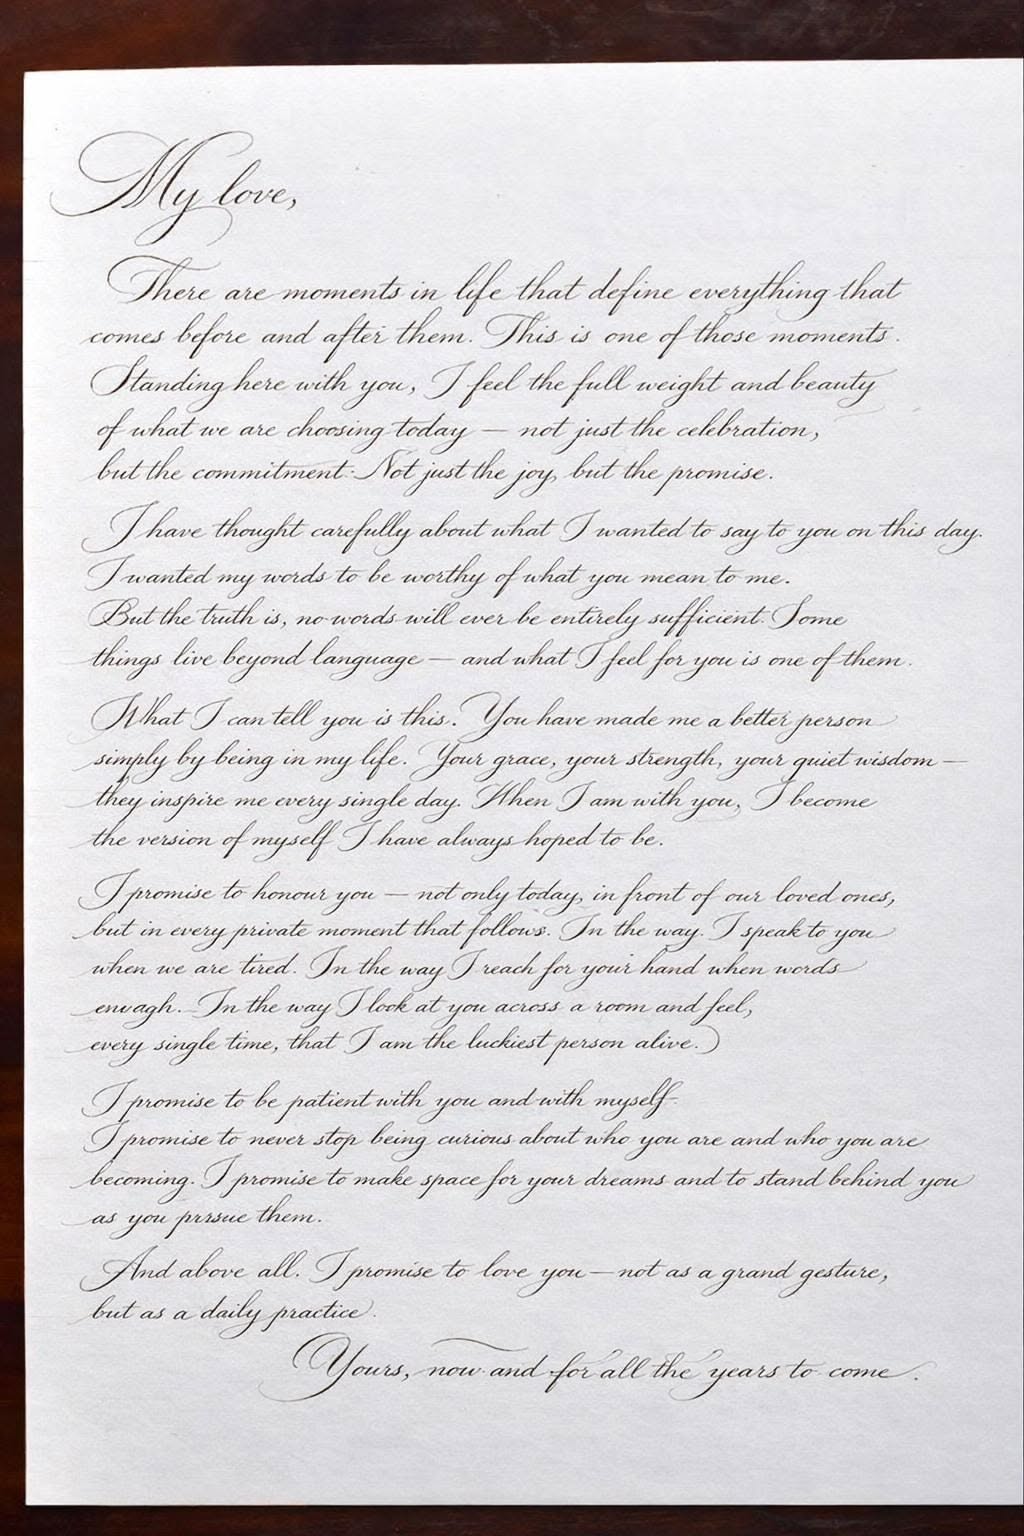 My love,
There are moments in life that define everything that
comes before and after them. This is one of those moments.
Standing here with you, I feel the full weight and beauty
of what we are choosing today — not just the celebration,
but the commitment. Not just the joy, but the promise.
I have thought carefully about what I wanted to say to you on this day.
I wanted my words to be worthy of what you mean to me.
But the truth is, no words will ever be entirely sufficient. Some
things live beyond language — and what I feel for you is one of them.
What I can tell you is this. You have made me a better person
simply by being in my life. Your grace, your strength, your quiet wisdom —
they inspire me every single day. When I am with you, I become
the version of myself I have always hoped to be.
I promise to honour you — not only today, in front of our loved ones,
but in every private moment that follows. In the way. I speak to you
when we are tired. In the way I reach for your hand when words
envagh. In the way I look at you across a room and feel,
every single time, that I am the luckiest person alive.)
I promise to be patient with you and with myself.
I promise to never stop being curious about who you are and who you are
becoming. I promise to make space for your dreams and to stand behind you
as you prrsue them.
And above all. I promise to love you — not as a grand gesture,
but as a daily practice.
Yours, now and for all the years to come.